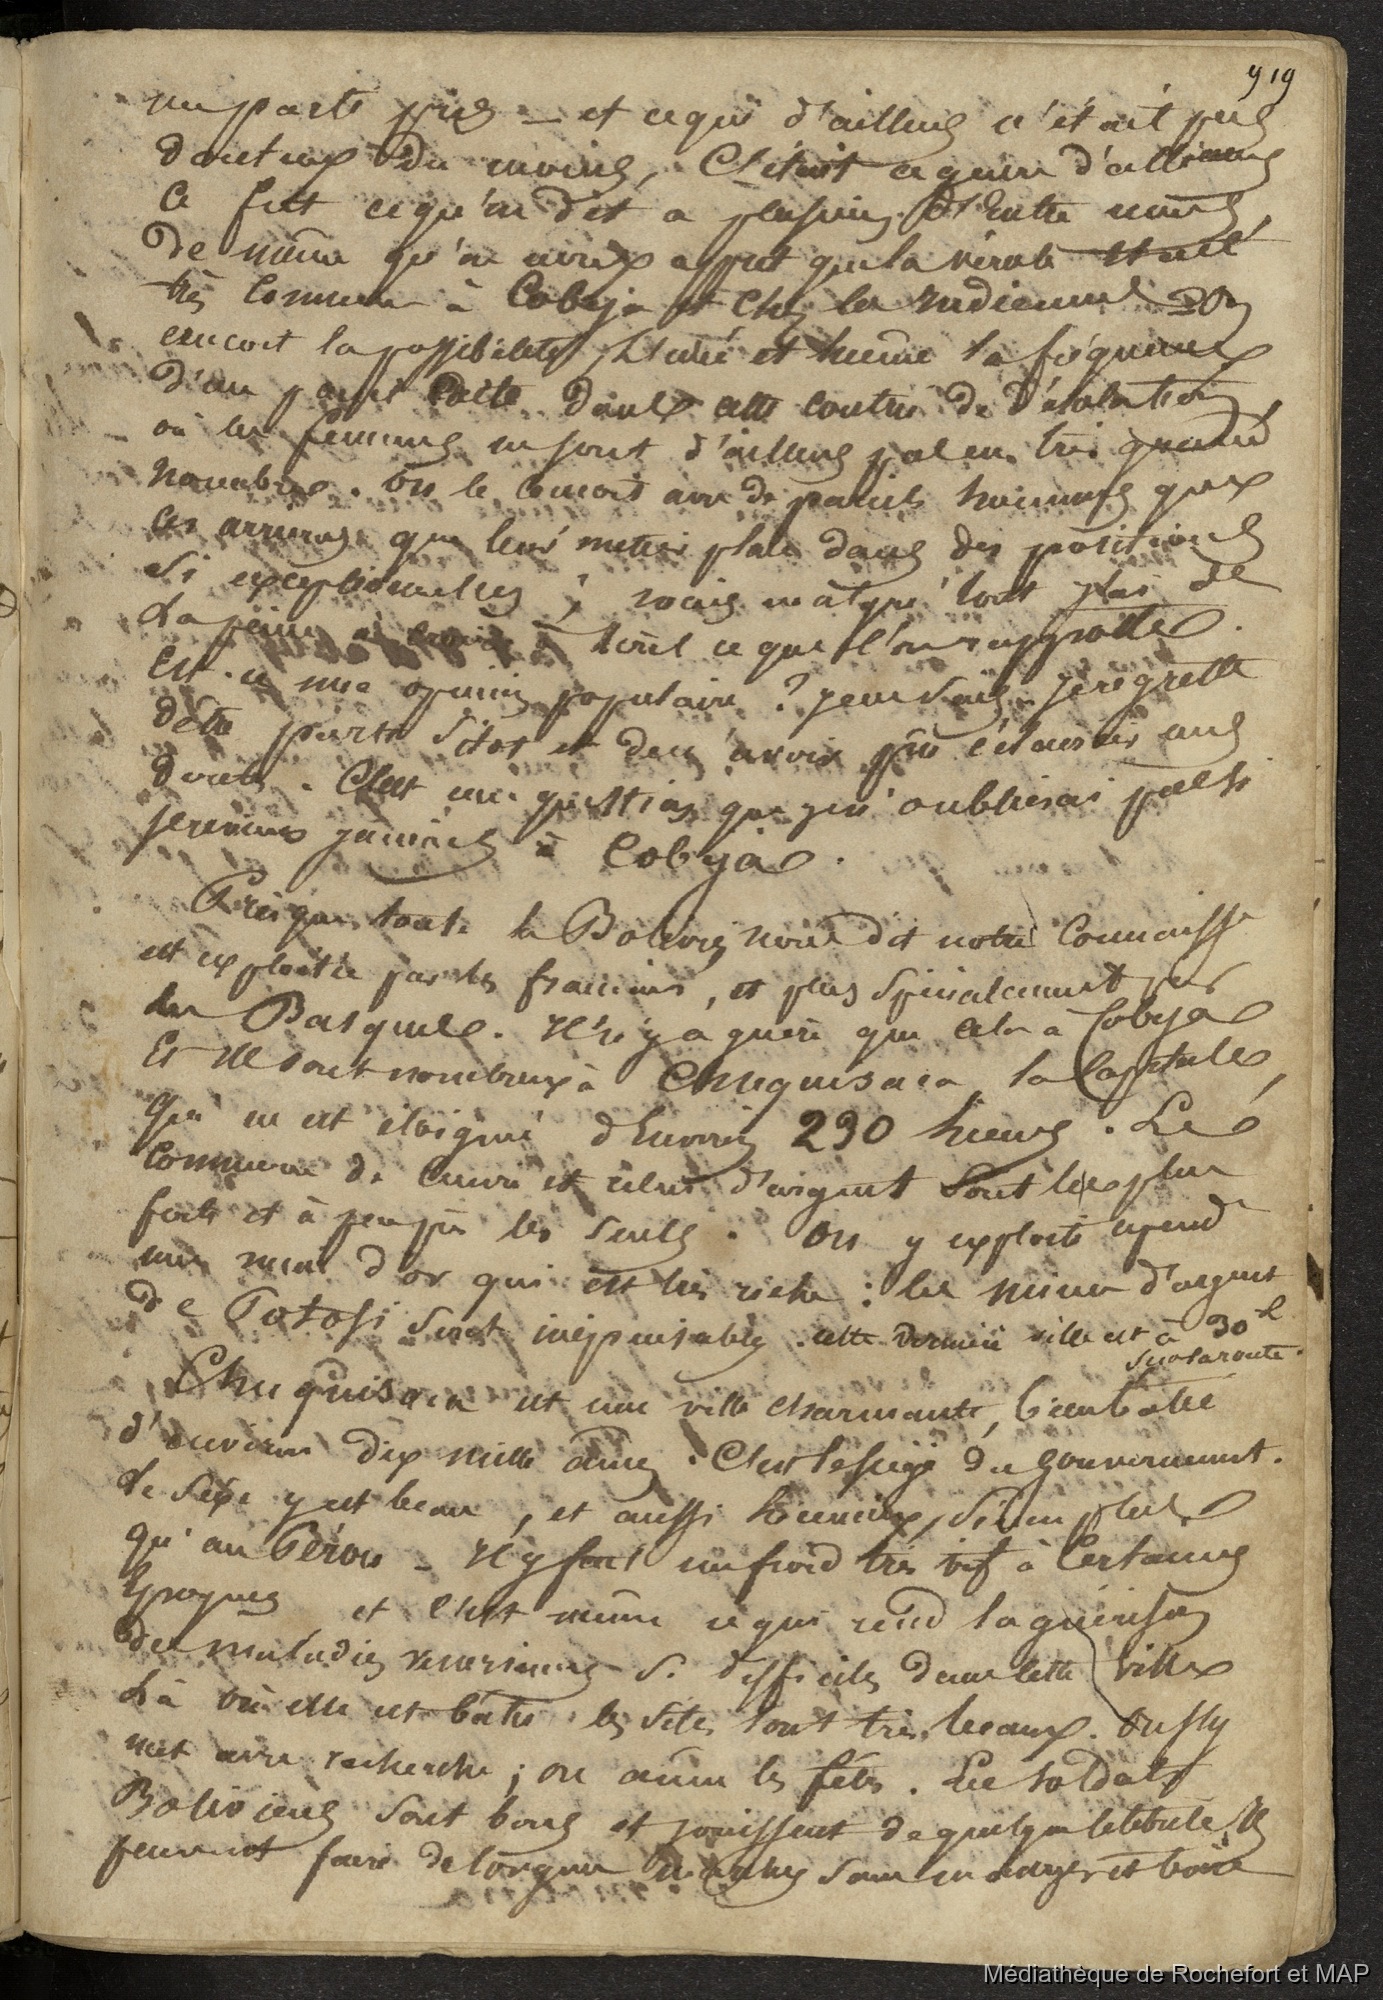 919
parti pris — et ce qui d'ailleurs n'était pas
douteux du moins, C'était
Ce fut ce qu'on dit a plusieurs d'Entre nous,
de même qu' que la vérole était
très Commune à Cobija et Chez les Indiennes. On
conçoit la possibilité, et même la fréquence
d'un pareil dans cette contrée de désolation,
où les femmes ne sont d'ailleurs pas en très grand
nombre. On le conçoit avec de pareils hommes que
ces que leur metier place dans des positions
si exceptionnelles; mais malgré tout j'ai de
La peine à croire à tout ce que l'on rapporte.
Est-ce une opinion populaire? je ne sais. je regrette
d'être parti sitôt et de n'avoir pu éclaircir mes
doutes. C'est une question que je n'oublierai pas si
je reviens jamais à Cobija.
Presque toute la Bolivie, nous dit notre Connaisse
est exploitée par les français, et plus spécialement par
des Basques. Il n'y a guère que cela à Cobija
Et Ils sont nombreux à Chuquisaca, la Capitale,
qui en est éloignée d'Environ 290 lieues. Le
Commerce de Cuivre et celui d'argent sont les plus
forts et à peu près les seuls. On y exploite
une mine d'or qui est très riche: les mines d'argent
de Potosi sont inépuisables. cette dernière ville est à 30 l
sur la route.
Chuquisaca est une ville charmante, bien bâtie
d'environ dix mille âmes. C'est le siége du gouvernement.
Le sexe y est beau, et aussi
qu'au Pérou — Il y fait un froid très vif à Certaines
Epoques et c'est même ce qui rend la guérison
des maladies vénériennes si difficiles dans cette ville
Là où elle est bâtie les sites sont très beaux. On s'y
met avec recherche; on aime les fêtes. Les soldats
Boliviens sont bons et jouissent de quelque
peuvent faire de longues marches sans manger et boire
Médiathèque de Rochefort et MAP